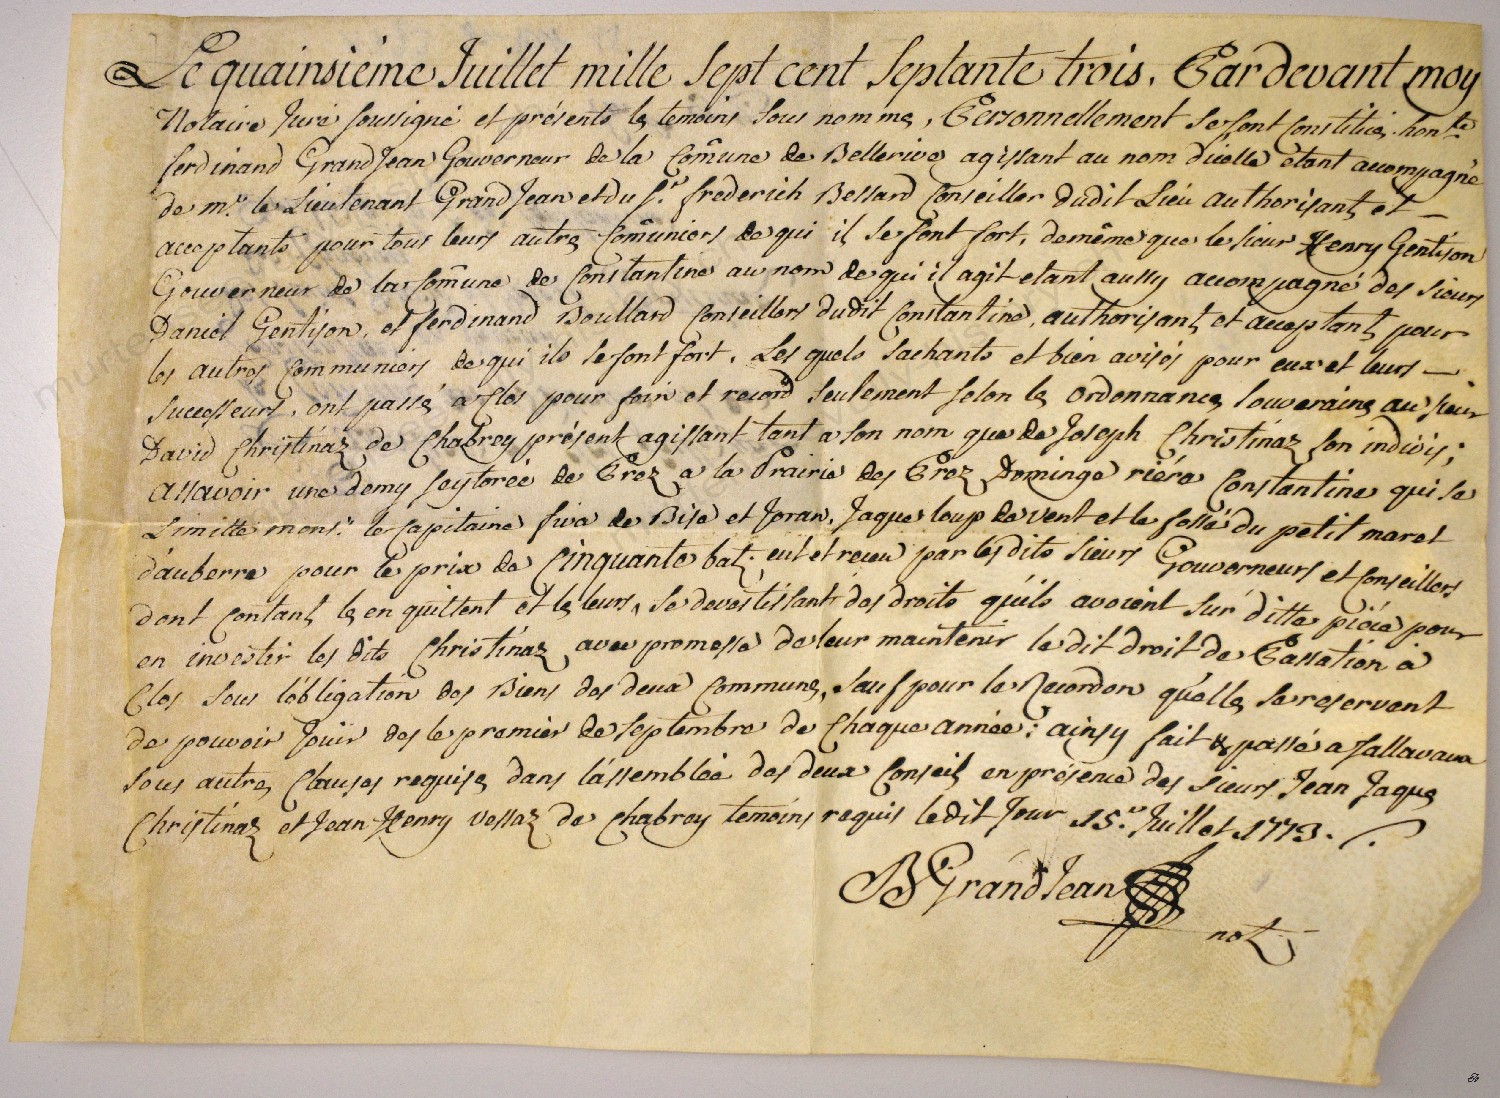 Le quainsiéme Juillet mille Sept cent Septante trois. Pardevant moy
Notaire Juré soussigné et présents le temoins sous nommes, Personnellement se sont constitués honte
ferdinand GrandJean Gouverneur de la Com̃une de Bellerive agissant au nom dicelle etant acompagné
de mr. le Lieutenant GrandJean et du Sr. frederich Bessard Conseiller dudit Lieu authorisant et —
acceptants pour tous leurs autres Com̃uniers de qui il se font fort, de même que le sieur Henry Gentison
Gouverneur de la Com̃une de Constantine au nom de qui il agit etant aussy accompagné des sieurs
Daniel Gentison, et ferdinand Boullard Conseillers dudit Constantine, authorisant et acceptant pour
les autres Communiers de qui ils se font fort, Les quels sachants et bien avisés pour eux et leurs —
successeurs, ont passé a Clos pour foin et record seulement selon les ordonnances souveraines au sieur
David Christinaz de Chabrey présent agissant tant a son nom que de Joseph Christinaz son indivis;
assavoir une demy seytorée de Prez a la Prairie des Prez Domingo riére Constantine qui se
Limitte monsr. le Capitaine fiva de Bise et Joran, Jaque loup de vent et le fossé du petit maret
d'auberre pour le prix de Cinquante batz. eut et receu par les dits sieurs Gouverneurs et Conseillers
dont contant les en quittent et les leurs, se devestissant des droits qu'ils avoient sur ditte piéce pour
en investir les dits Christinaz avec promesse de leur maintenir le dit droit de Passation à
Clos sous l'obligation des Biens des deux Communes, sauf pour le Recordon qu'elles se reservent
de pouvoir Jouïr des le premier de septembre de Chaque année: ainsy fait & passé a Sallavaux
sous autres Clauses requises dans l'assemblée des deux Conseils en présence des sieurs Jean Jaques
Christinaz et Jean Henry Vessaz de Chabrey temoins requis le dit Jour 15e. Juillet 1773.
B GrandJean
not